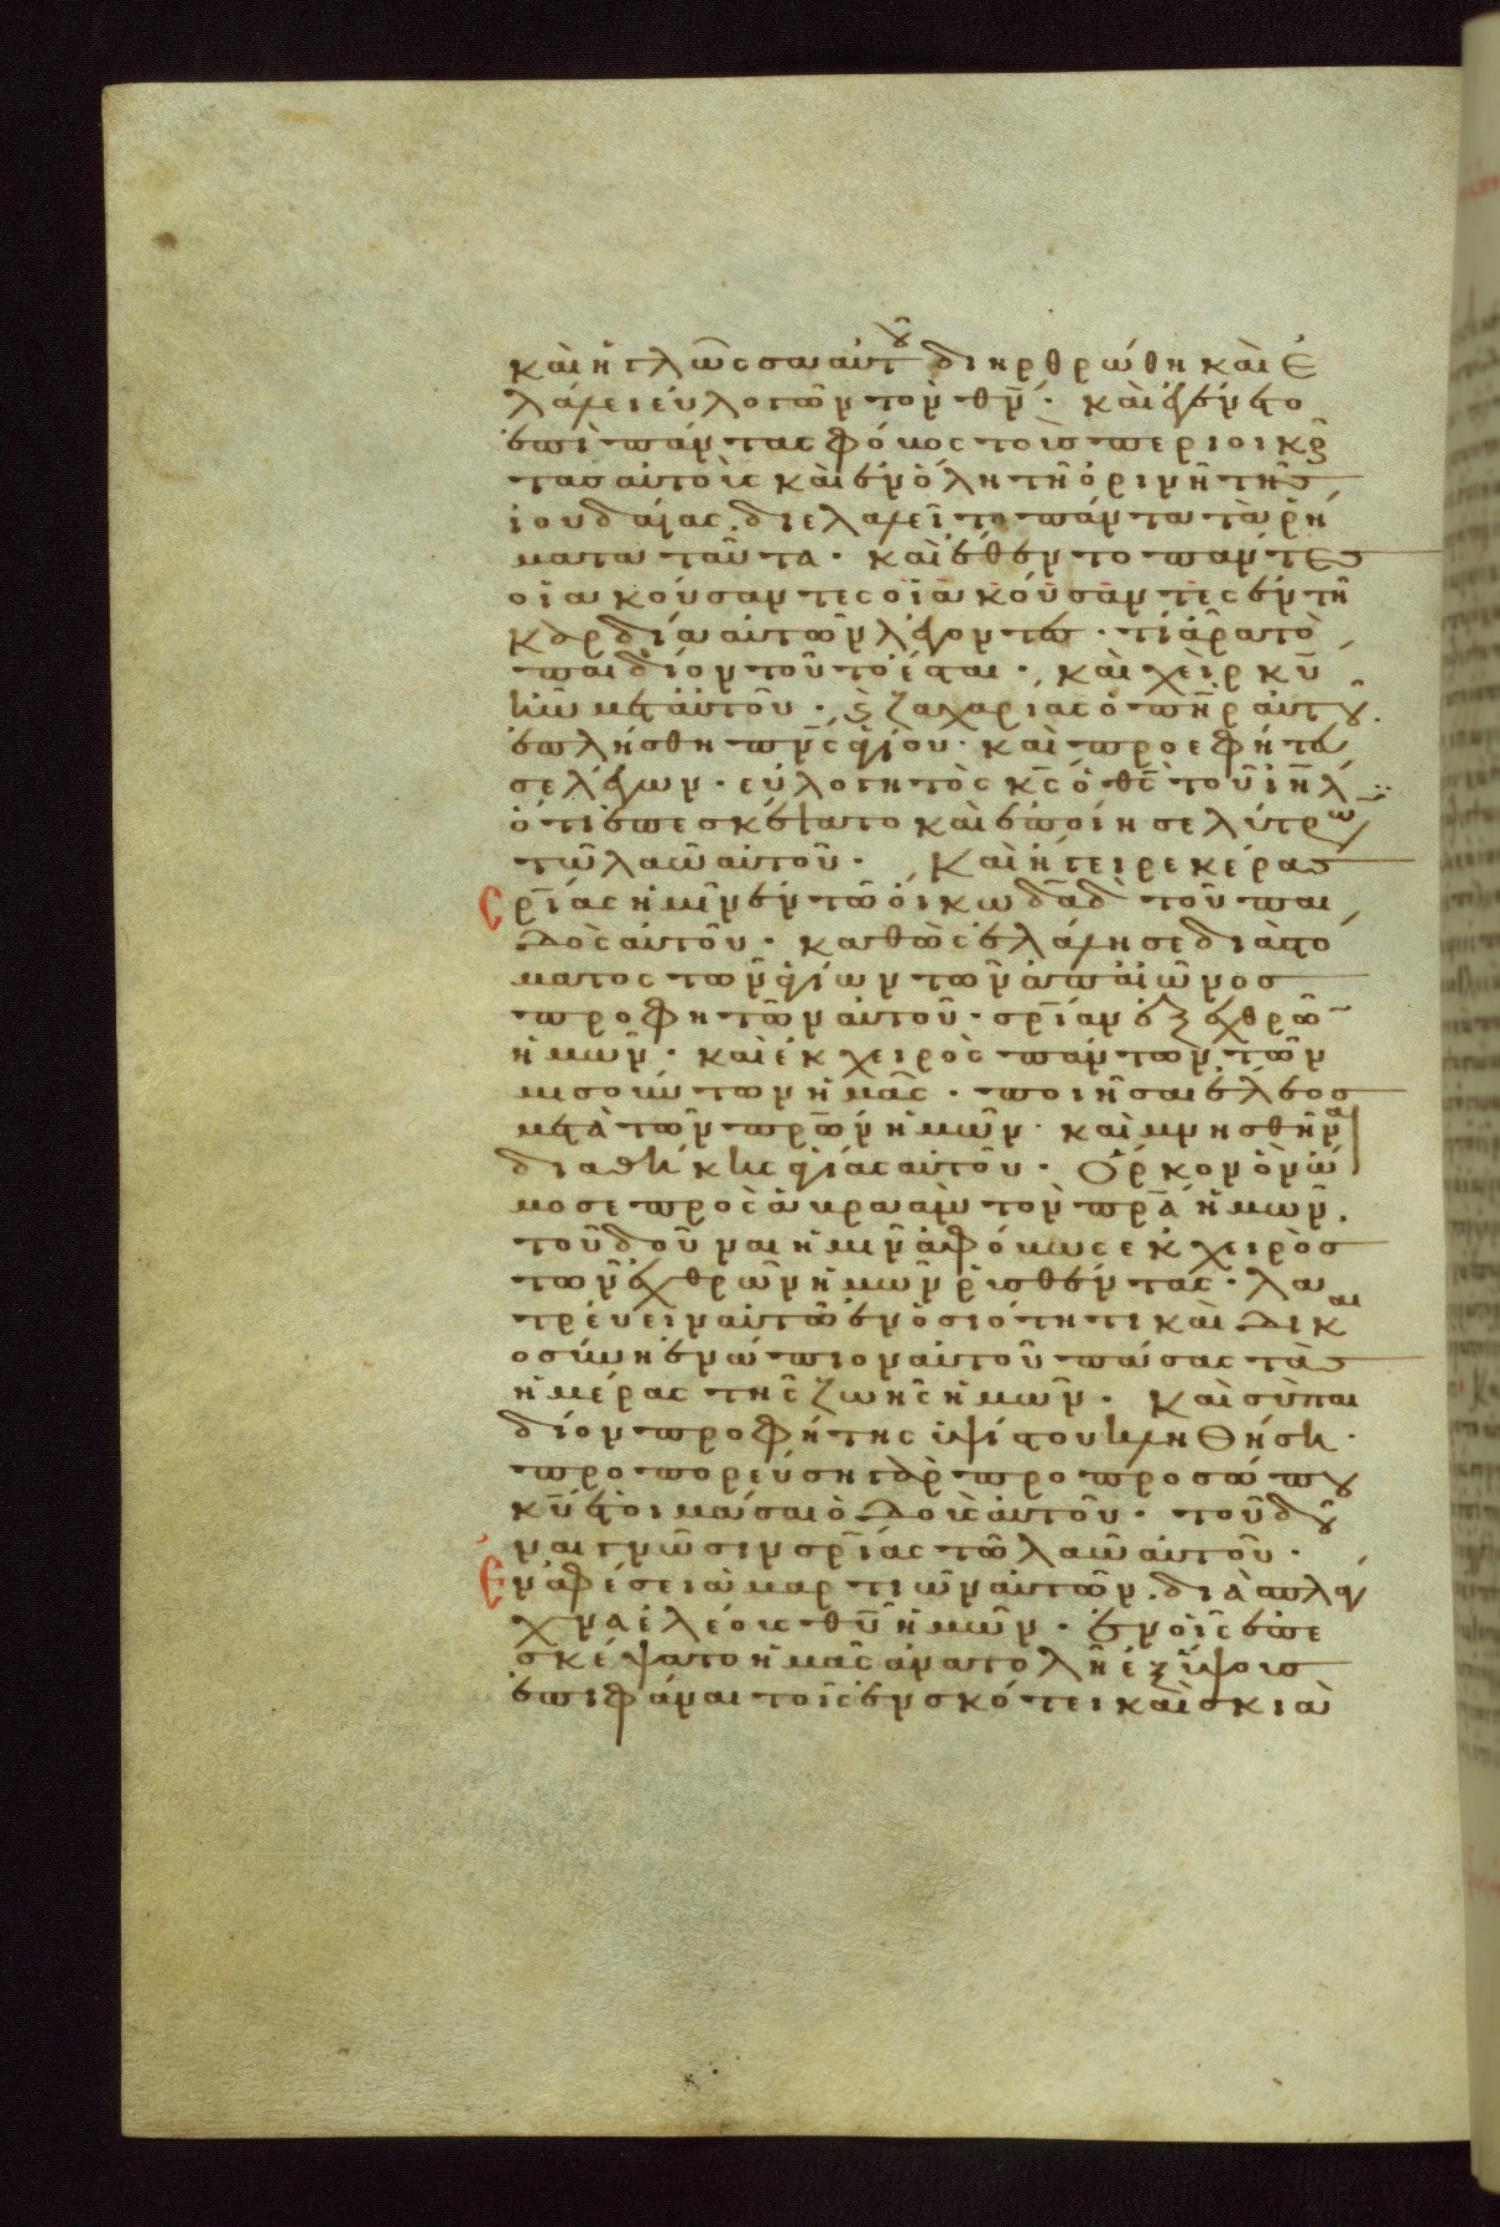 καὶ ἡ γλῶσσα αὐτοῦ διηρθρώθη καὶ ἐ
λάλει εὐλογῶν τὸν θν̅· καὶ ἐγένετο
ἐπὶ πάντας φόβος τοὺς περιοικοῦ
τας αὐτοὺς καὶ ἐν ὅλη τῆ ὀρινῆ τῆς
ἰουδαίας. διελαλεῖτο πάντα τὰ ῥή
ματα ταῦτα· καὶ ἔθεντο πάντες
οἱ ἀκούσαντες οἱ ἀκούσαντες ἐν τῆ
καρδία αὐτῶν λέγοντες· τί ἄρα τὸ
παιδίον τοῦτο ἔσται· καὶ χεὶρ κυ̅
ἦν μετ' αὐτοῦ· ϗ ζαχαρίας ὁ πη̅ρ αὐτοῦ.
ἐπλήσθη πν̅ς ἁγίου· καὶ προεφήτευ
σε λέγων· εὐλογητὸς κς̅ ὁ θς̅ τοῦ ιη̅λ
ὅτι ἐπεσκέψατο καὶ ἐποίησε λύτρω
τῶ λαῶ αὐτοῦ· Καὶ ἤγειρε κέρας
σρ̅ίας ἡμῖν ἐν τῶ οἴκω δα̅δ τοῦ παι
δὸς αὐτοῦ· καθὼς ἐλάλησε διὰ στό
ματος τῶν ἁγίων τῶν ἀπ' αἰῶνος
προφητῶν αὐτοῦ· σρ̅ίαν ἐξ ἐχθρῶ̅
ἡμῶν· καὶ ἐκ χειρὸς πάντων τῶν
μισούντων ἡμᾶς· ποιῆσαι ἔλεος
μετὰ τῶν πρ̅ων ἡμῶν· καὶ μνησθῆναι
διαθήκης ἁγίας αὐτοῦ· Ὅρκον ὃν ὤ
μοσε πρὸς ἀβρααμ τὸν πρ̅α ἡμῶν.
τοῦ δοῦναι ἡμῖν ἀφόβως ἐκ χειρὸς
τῶν ἐχθρῶν ἡμῶν ῥυσθέντας· λα
τρεύειν αὐτῶ ἐν ὁσιότητι καὶ δικαι
οσύνη ἐνώπιον αὐτοῦ πάσας τὰς
ἡμέρας τῆς ζωῆς ἡμῶν· Καὶ σὺ παι
δίον προφήτης ὑψίστου κληθήση·
προπορεύση γὰρ πρὸ προσώπου
κυ̅ ἑτοιμάσαι ὁδοὺς αὐτοῦ· τοῦ δοῦ
ναι γνῶσιν σρ̅ίας τῶ λαῶ αὐτοῦ·
Ἐν ἀφέσει ἁμαρτιῶν αὐτῶν. διὰ σπλά
χνα ἐλέους θυ̅ ἡμῶν· ἐν οἷς ἐπε
σκέψατο ἡμᾶς ἀνατολὴ ἐξ ὕψους
ἐπιφάναι τοῖς ἐν σκότει καὶ σκιᾶ